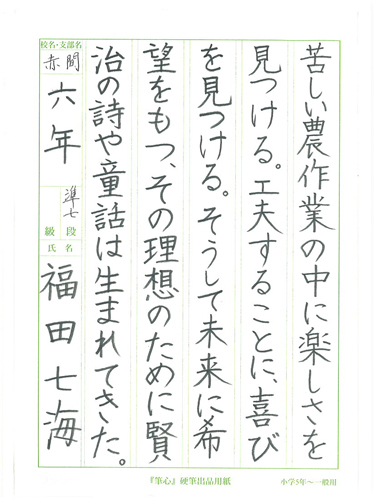 苦しい農作業の中に楽しさを
見つける。工夫することに、喜び
を見つける。そうして未来に希
望をもつ、その理想のために賢
治の詩や童話は生まれてきた。
校名・支部名
赤間
六年
準七
級 段
氏名
福田七海
『筆心』硬筆出品用紙
小学5年～一般用